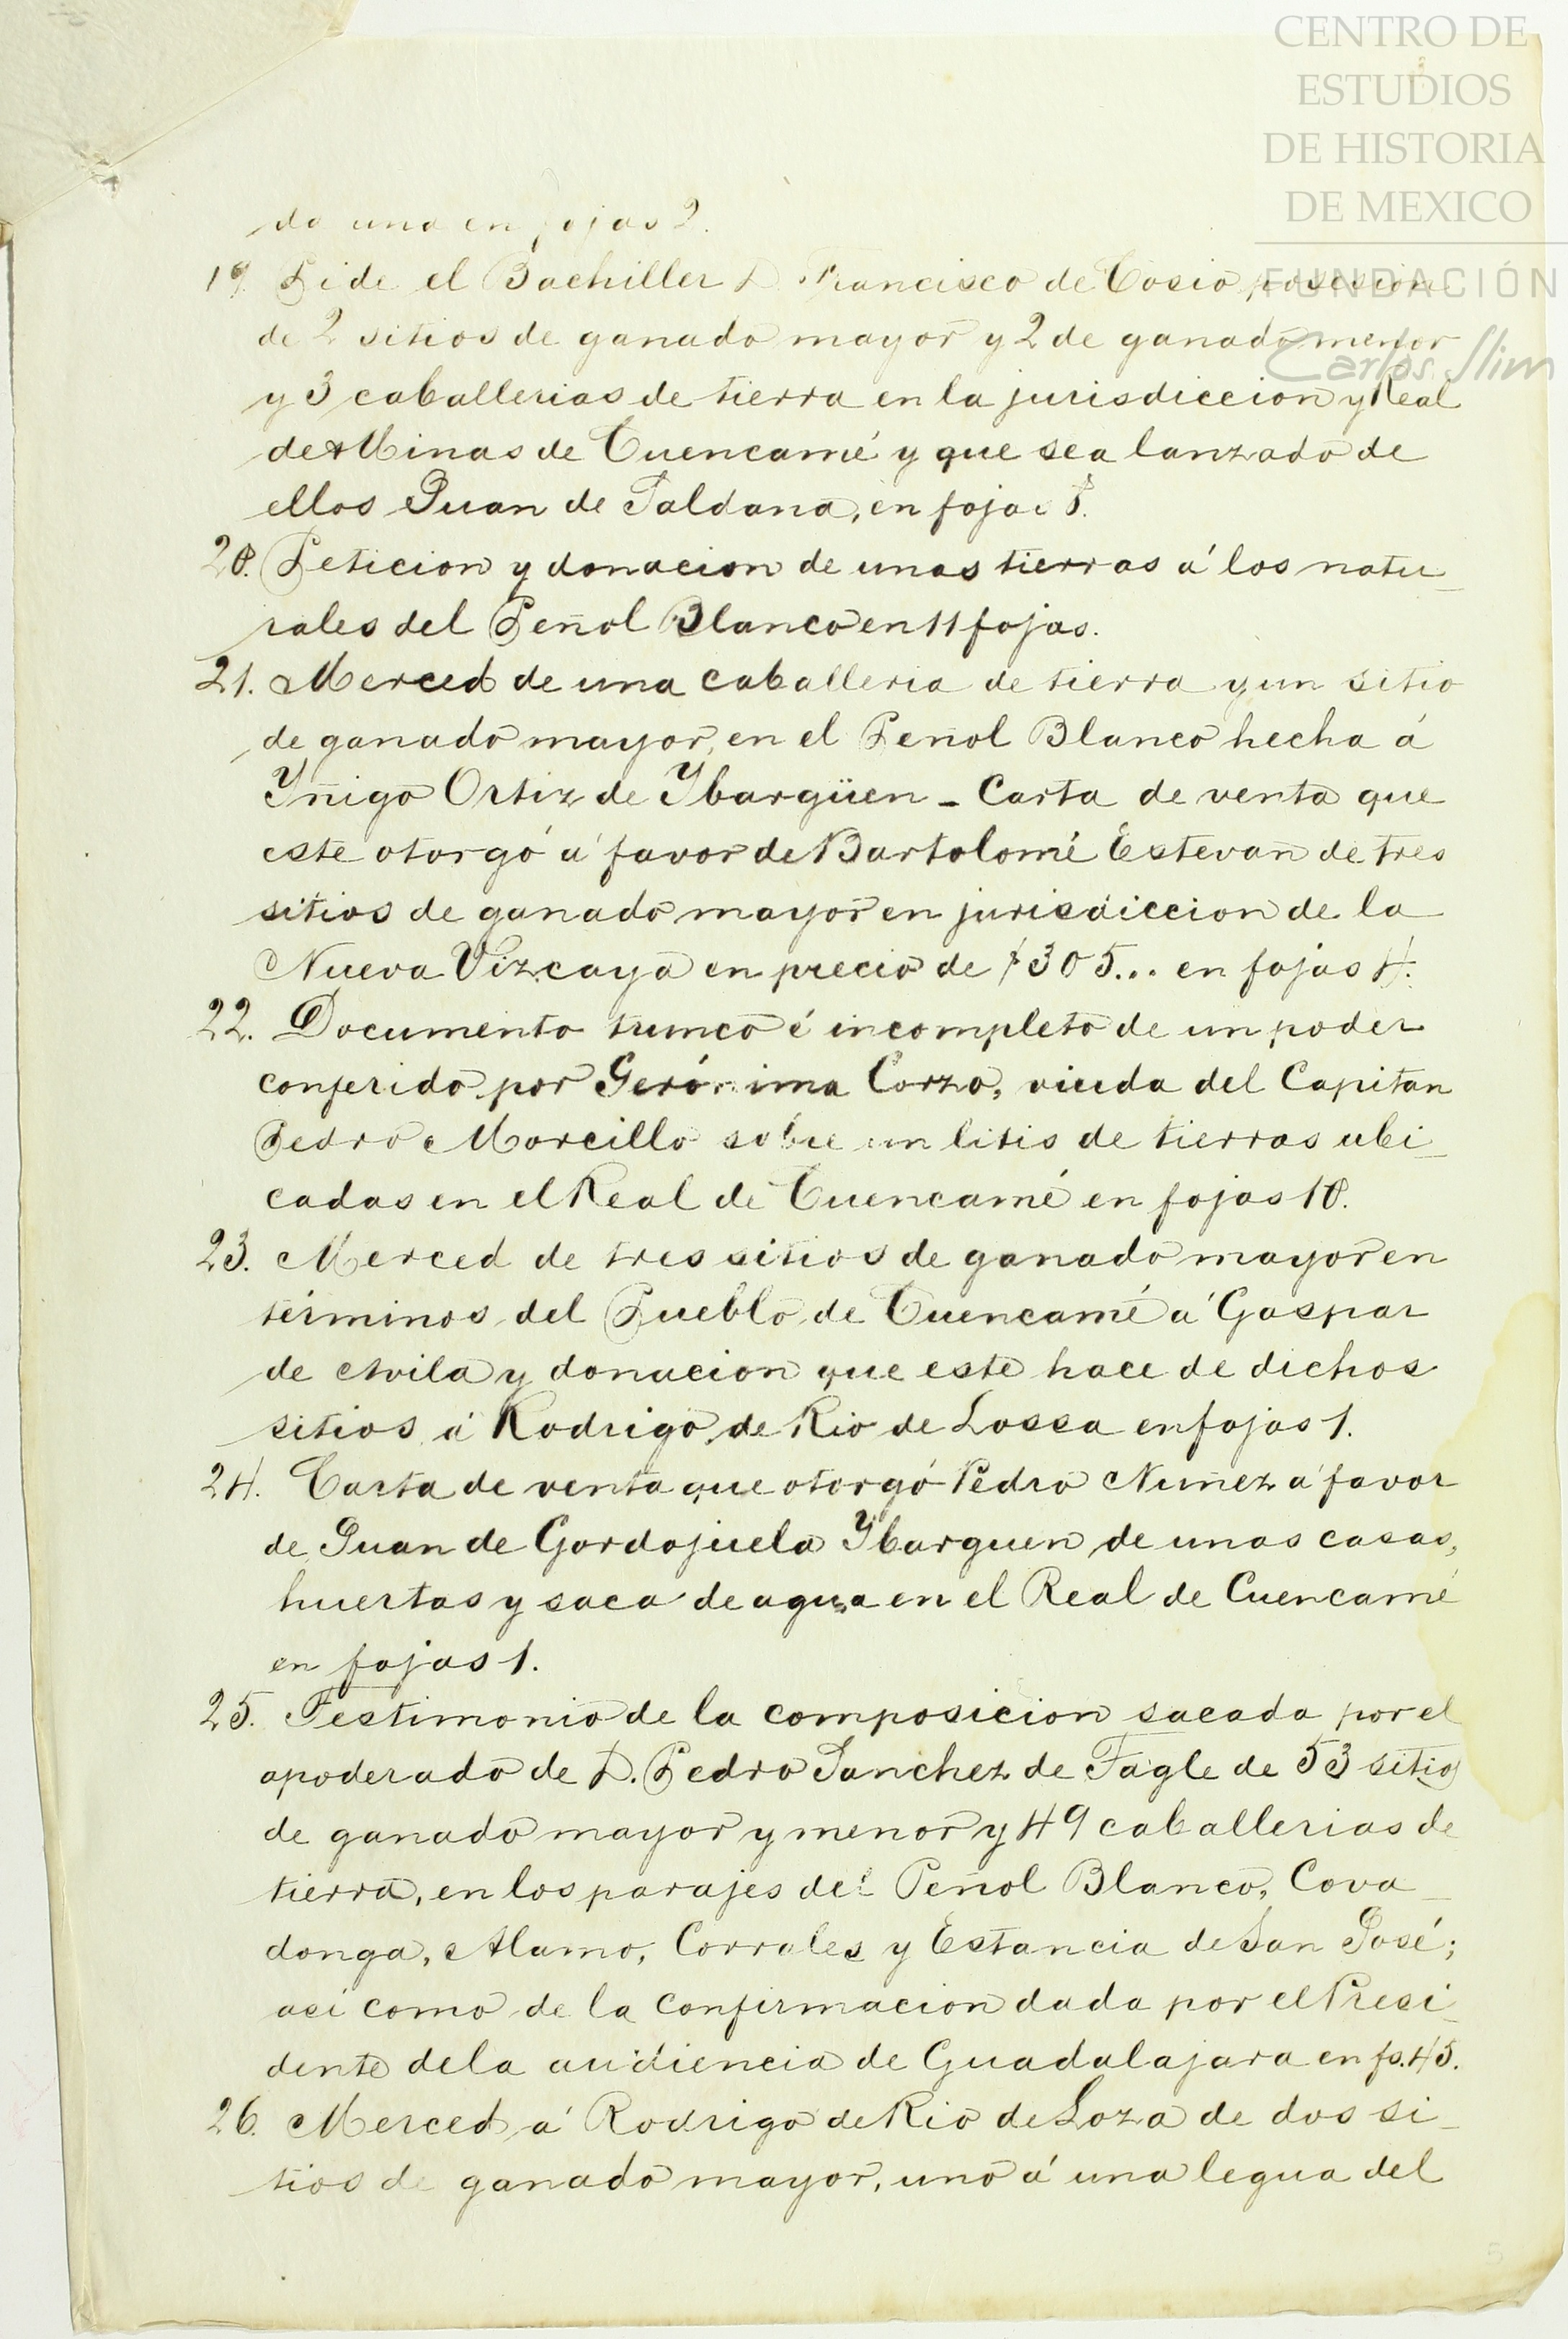 CENTRO DE
ESTUDIOS
DE HISTORIA
DE MEXICO
FUNDACIÓN
Carlos Slim
da una en fojas 2.
19. Pide el Bachiller D. Francisco de Cosio posesion
de 2 sitios de ganado mayor y 2 de ganado menor
y 3 caballerias de tierra en la jurisdiccion y Real
de Minas de Cuencamé y que sea lanzado de
ellos Juan de Saldana, en fojas
20. Peticion y donacion de unas tierras á los natu_
rales del Peñol Blanco en 11 fojas.
21. Merced de una caballeria de tierra y un sitio
de ganado mayor, en el Peñol Blanco hecha á
Yñigo Ortiz de Ybargüen - Carta de venta que
este otorgó á favor de Bartolomé Estevan de tres
sitios de ganado mayor en jurisdiccion de la
Nueva Vizcaya en precio de $305... en fojas 4.
22. Documento trunco é incompleto de un poder
conferido por Gerónima Corzo, viuda del Capitan
Pedro Morcillo sobre un litis de tierras ubi_
cadas en el Real de Cuencamé en fojas 10.
23. Merced de tres sitios de ganado mayor en
términos del Pueblo de Cuencamé á Gaspar
de Avila y donacion que este hace de dichos
sitios á Rodrigo de Rio de Lossa en fojas 1.
24. Carta de venta que otorgó Pedro Nuñez á favor
de Juan de Gordojuela Ybarguen de unas casas,
huertas y saca de agua en el Real de Cuencamé
en fojas 1.
25. Testimonio de la composicion sacada por el
apoderado de D. Pedro Sanchez de Tagle de 53 sitios
de ganado mayor y menor y 49 caballerias de
tierra, en los parajes del Peñol Blanco, Cova_
donga, Alamo, Corrales y Estancia de San José;
asi como de la confirmacion dada por el Presi_
dente de la audiencia de Guadalajara en fs. 45.
26. Merced á Rodrigo de Rio de Loza de dos si_
tios de ganado mayor, uno á una legua del
5